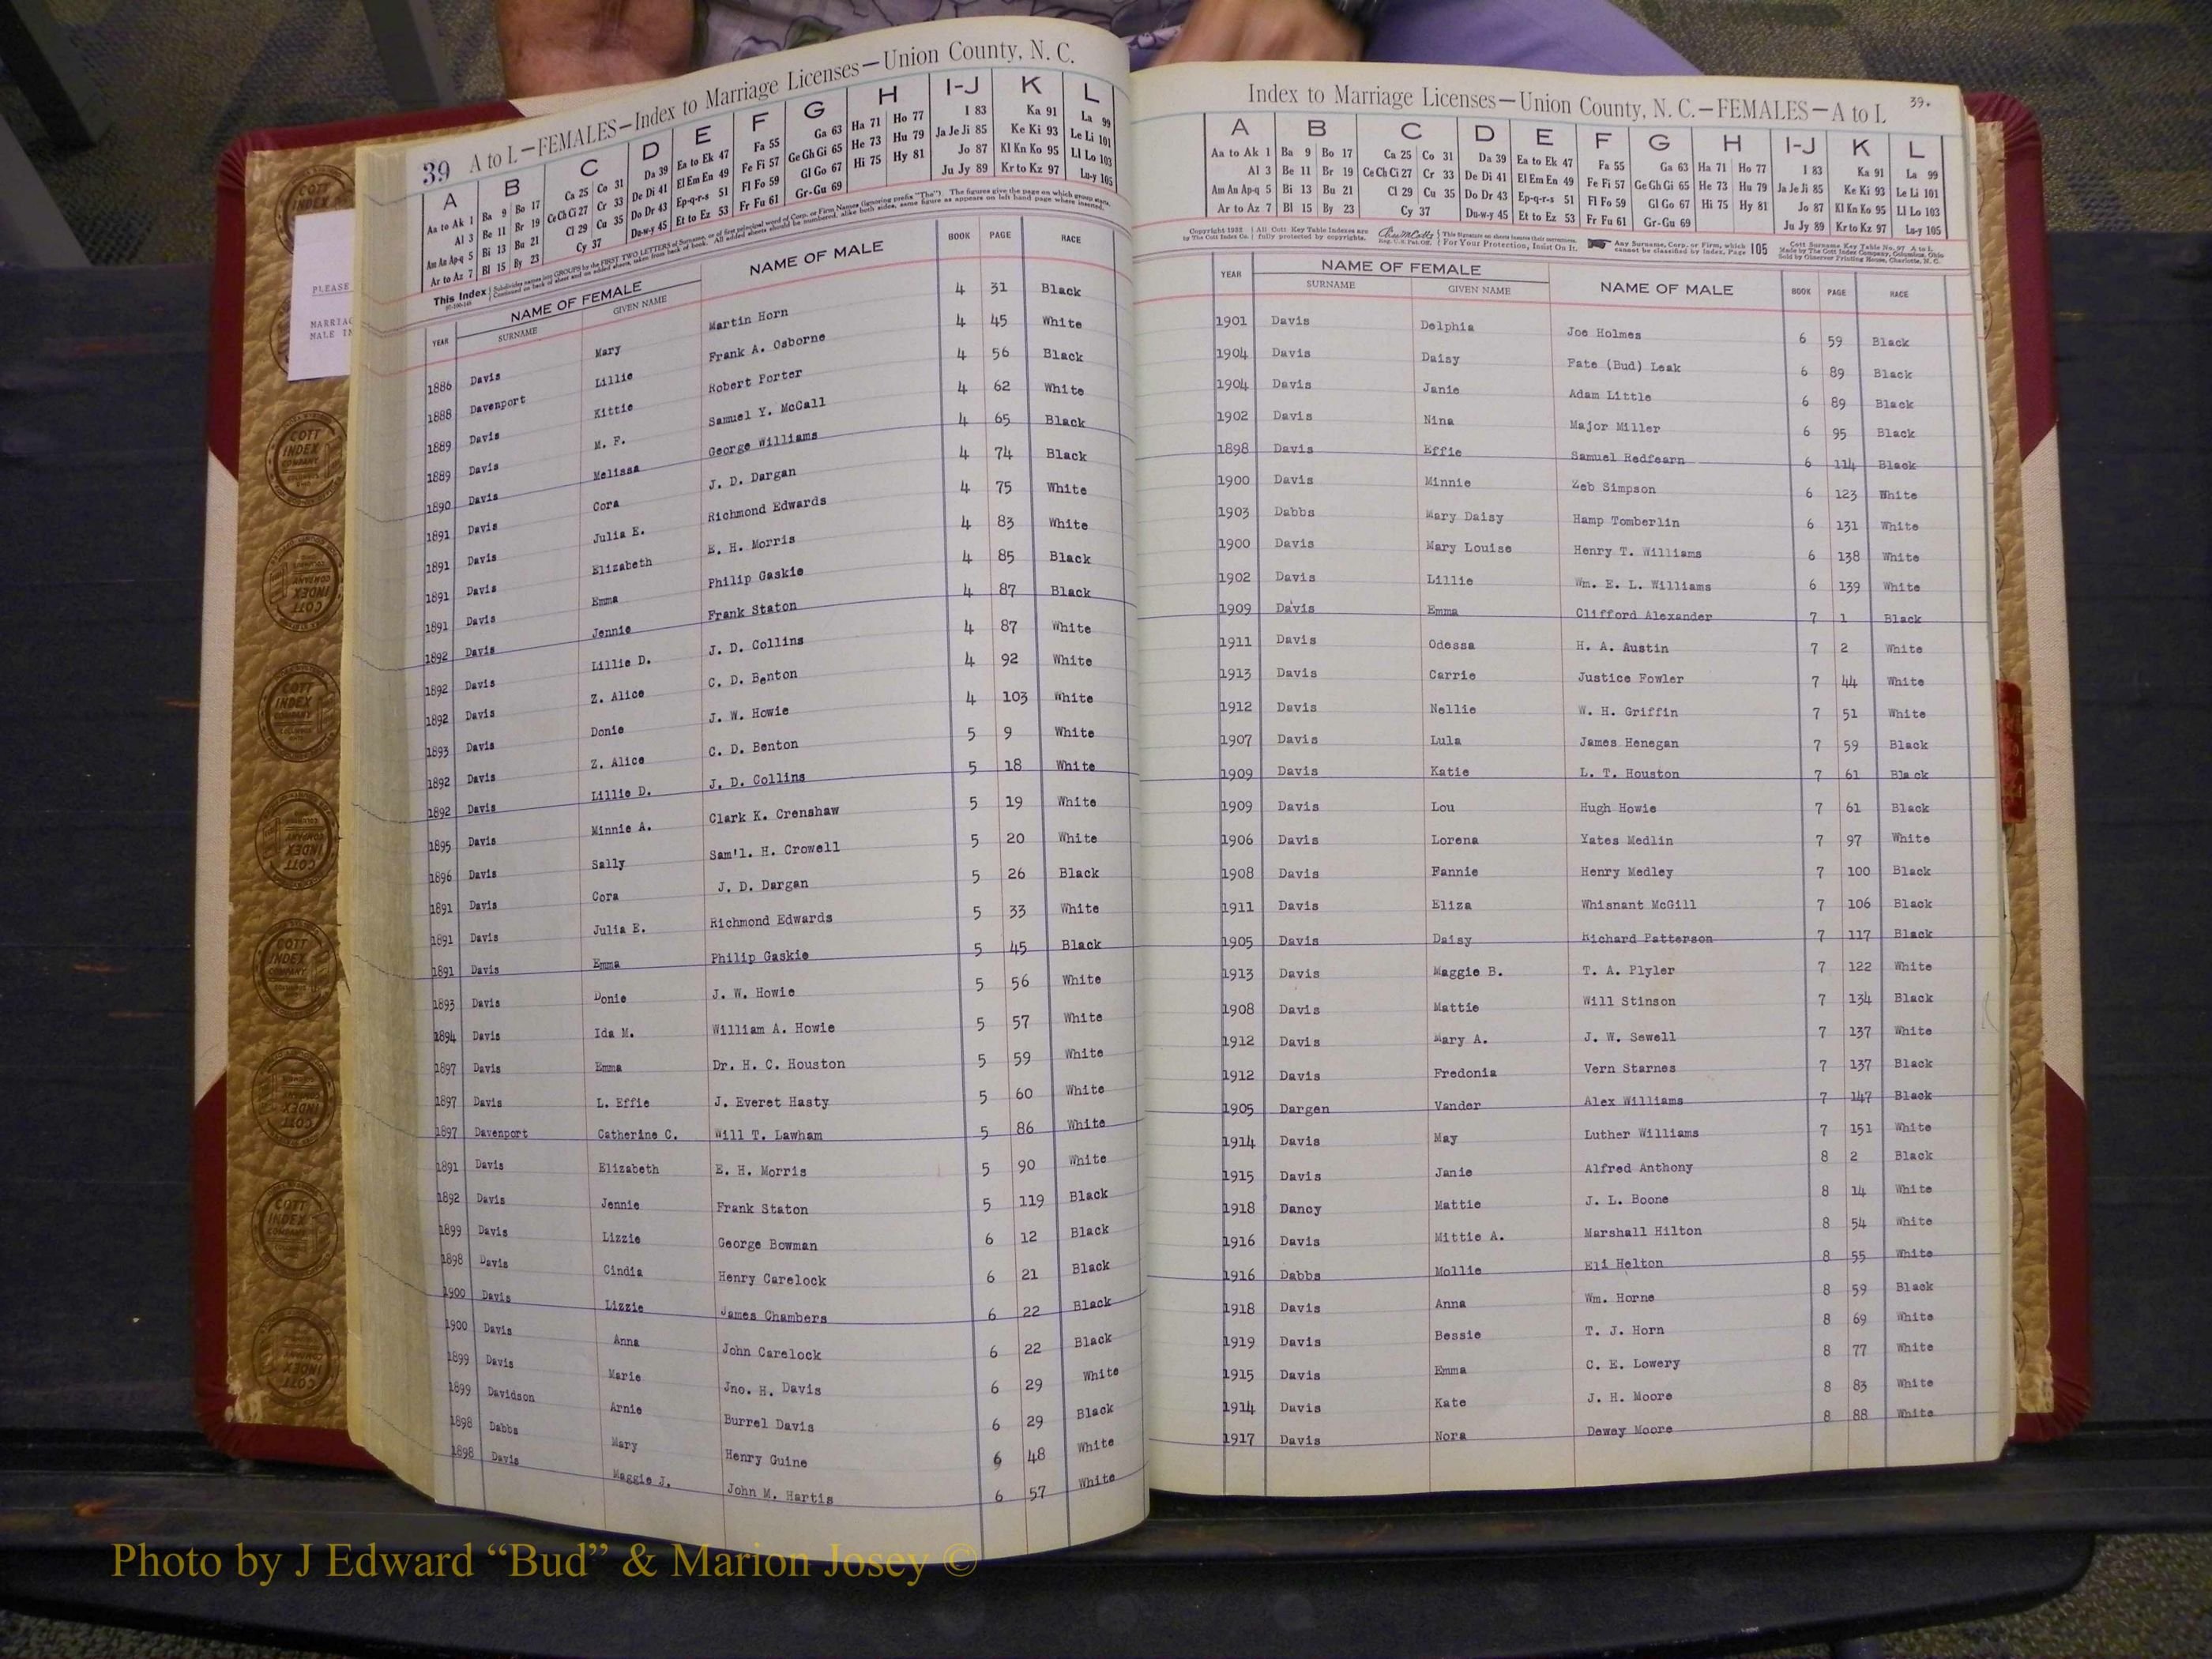 39 A to L—FEMALES—Index to Marriage Licenses—Union County, N. C.
A B C D E F G H I-J K L
Aa to Ak 1 Ba 9 Bo 17 Ca 25 Co 31 Da 39 Ea to Ek 47 Fa 55 Ga 63 Ha 71 Ho 77 I 83 Ka 91 La 99
Al 3 Be 11 Br 19 Ce Ch Ci 27 Cr 33 De Di 41 El Em En 49 Fe Fi 57 Ge Gh Gi 65 He 73 Hu 79 Ja Je Ji 85 Ke Ki 93 Le Li 101
Am An Ap-q 5 Bi 13 Bu 21 Cl 29 Cu 35 Do Dr 43 Ep-q-r-s 51 Fl Fo 59 Gl Go 67 Hi 75 Hy 81 Jo 87 Kl Kn Ko 95 Ll Lo 103
Ar to Az 7 Bl 15 By 23 Cy 37 Du-w-y 45 Et to Ez 53 Fr Fu 61 Gr-Gu 69 Ju Jy 89 Kr to Kz 97 Lu-y 105
YEAR NAME OF FEMALE NAME OF MALE BOOK PAGE RACE
SURNAME GIVEN NAME
1886 Davis Mary Martin Horn 4 31 Black
1888 Davenport Lillie Frank A. Osborne 4 45 White
1889 Davis Kittie Robert Porter 4 56 Black
1889 Davis M. F. Samuel Y. McCall 4 62 White
1890 Davis Melissa George Williams 4 65 Black
1891 Davis Cora J. D. Dargan 4 74 Black
1891 Davis Julia E. Richmond Edwards 4 75 White
1891 Davis Elizabeth E. H. Morris 4 83 White
1891 Davis Emma Philip Gaskie 4 85 Black
1892 Davis Jennie Frank Staton 4 87 Black
1892 Davis Lillie D. J. D. Collins 4 87 White
1892 Davis Z. Alice C. D. Benton 4 92 White
1893 Davis Donie J. W. Howie 4 103 White
1892 Davis Z. Alice C. D. Benton 5 9 White
1892 Davis Lillie D. J. D. Collins 5 18 White
1895 Davis Minnie A. Clark K. Crenshaw 5 19 White
1896 Davis Sally Sam'l. H. Crowell 5 20 White
1891 Davis Cora J. D. Dargan 5 26 Black
1891 Davis Julia E. Richmond Edwards 5 33 White
1891 Davis Emma Philip Gaskie 5 45 Black
1893 Davis Donie J. W. Howie 5 56 White
1894 Davis Ida M. William A. Howie 5 57 White
1897 Davis Emma Dr. H. C. Houston 5 59 White
1897 Davis L. Effie J. Everet Hasty 5 60 White
1897 Davenport Catherine C. Will T. Lawham 5 86 White
1891 Davis Elizabeth E. H. Morris 5 90 White
1892 Davis Jennie Frank Staton 5 119 Black
1899 Davis Lizzie George Bowman 6 12 Black
1898 Davis Cindia Henry Carelock 6 21 Black
1900 Davis Lizzie James Chambers 6 22 Black
1900 Davis Anna John Carelock 6 22 Black
1899 Davis Marie Jno. H. Davis 6 29 White
1899 Davidson Arnie Burrel Davis 6 29 Black
1898 Dabbs Mary Henry Guine 6 48 White
1898 Davis Maggie J. John M. Hartis 6 57 White
PLEASE
MARRIAG
MALE IN
Index to Marriage Licenses—Union County, N. C.—FEMALES—A to L 39.
A B C D E F G H I-J K L
Aa to Ak 1 Ba 9 Bo 17 Ca 25 Co 31 Da 39 Ea to Ek 47 Fa 55 Ga 63 Ha 71 Ho 77 I 83 Ka 91 La 99
Al 3 Be 11 Br 19 Ce Ch Ci 27 Cr 33 De Di 41 El Em En 49 Fe Fi 57 Ge Gh Gi 65 He 73 Hu 79 Ja Je Ji 85 Ke Ki 93 Le Li 101
Am An Ap-q 5 Bi 13 Bu 21 Cl 29 Cu 35 Do Dr 43 Ep-q-r-s 51 Fl Fo 59 Gl Go 67 Hi 75 Hy 81 Jo 87 Kl Kn Ko 95 Ll Lo 103
Ar to Az 7 Bl 15 By 23 Cy 37 Du-w-y 45 Et to Ez 53 Fr Fu 61 Gr-Gu 69 Ju Jy 89 Kr to Kz 97 Lu-y 105
YEAR NAME OF FEMALE NAME OF MALE BOOK PAGE RACE
SURNAME GIVEN NAME
1901 Davis Delphia Joe Holmes 6 59 Black
1904 Davis Daisy Pate (Bud) Leak 6 89 Black
1904 Davis Janie Adam Little 6 89 Black
1902 Davis Nina Major Miller 6 95 Black
1898 Davis Effie Samuel Redfearn 6 114 Black
1900 Davis Minnie Zeb Simpson 6 123 White
1903 Dabbs Mary Daisy Hamp Tomberlin 6 131 White
1900 Davis Mary Louise Henry T. Williams 6 138 White
1902 Davis Lillie Wm. E. L. Williams 6 139 White
1909 Davis Emma Clifford Alexander 7 1 Black
1911 Davis Odessa H. A. Austin 7 2 White
1913 Davis Carrie Justice Fowler 7 44 White
1912 Davis Nellie W. H. Griffin 7 51 White
1907 Davis Lula James Henegan 7 59 Black
1909 Davis Katie L. T. Houston 7 61 Black
1909 Davis Lou Hugh Howie 7 61 Black
1906 Davis Lorena Yates Medlin 7 97 White
1908 Davis Fannie Henry Medley 7 100 Black
1911 Davis Eliza Whisnant McGill 7 106 Black
1905 Davis Daisy Richard Patterson 7 117 Black
1913 Davis Maggie B. T. A. Plyler 7 122 White
1908 Davis Mattie Will Stinson 7 134 Black
1912 Davis Mary A. J. W. Sewell 7 137 White
1912 Davis Fredonia Vern Starnes 7 137 Black
1905 Dargen Vander Alex Williams 7 147 Black
1914 Davis May Luther Williams 7 151 White
1915 Davis Janie Alfred Anthony 8 2 Black
1918 Dancy Mattie J. L. Boone 8 14 White
1916 Davis Mittie A. Marshall Hilton 8 54 White
1916 Dabbs Mollie Eli Helton 8 55 White
1918 Davis Anna Wm. Horne 8 59 Black
1919 Davis Bessie T. J. Horn 8 69 White
1915 Davis Emma C. E. Lowery 8 77 White
1914 Davis Kate J. H. Moore 8 83 White
1917 Davis Nora Dewey Moore 8 88 White
Photo by J Edward “Bud” & Marion Josey ©